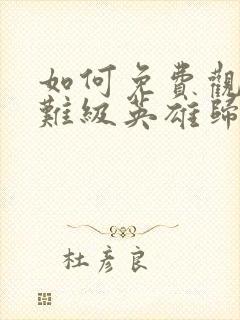 如何免費觀
難級英雄歸
杜彥良